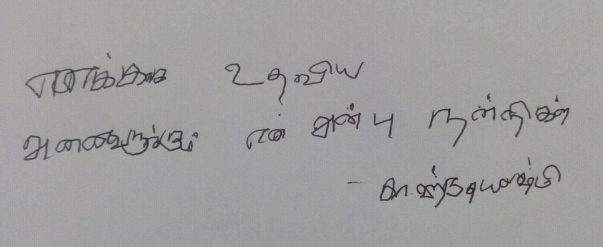 எனக்கு உதவிய
அனைவருக்கும் என் அன்பு நன்றிகள்
-